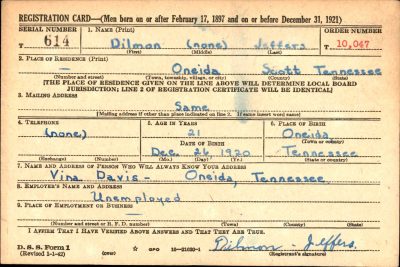 REGISTRATION CARD—(Men born on or after February 17, 1897 and on or before December 31, 1921)
SERIAL NUMBER 1. NAME (Print) ORDER NUMBER
T 614 Dilmon (none) Jeffers T 10,047
(First) (Middle) (Last)
2. PLACE OF RESIDENCE (Print)
— Oneida Scott Tennessee
(Number and street) (Town, township, village, or city) (County) (State)
[THE PLACE OF RESIDENCE GIVEN ON THE LINE ABOVE WILL DETERMINE LOCAL BOARD
JURISDICTION; LINE 2 OF REGISTRATION CERTIFICATE WILL BE IDENTICAL]
3. MAILING ADDRESS
Same
[Mailing address if other than place indicated on line 2. If same insert word same]
4. TELEPHONE 5. AGE IN YEARS 6. PLACE OF BIRTH
(none) 21 Oneida
DATE OF BIRTH (Town or county)
Dec. 26, 1920 Tennessee
(Exchange) (Number) (Mo.) (Day) (Yr.) (State or country)
7. NAME AND ADDRESS OF PERSON WHO WILL ALWAYS KNOW YOUR ADDRESS
Vina Davis — Oneida, Tennessee
8. EMPLOYER'S NAME AND ADDRESS
Unemployed
9. PLACE OF EMPLOYMENT OR BUSINESS
(Number and street or R. F. D. number) (Town) (County) (State)
I AFFIRM THAT I HAVE VERIFIED ABOVE ANSWERS AND THAT THEY ARE TRUE.
D. S. S. Form 1 GPO 16—21630-1 Dilmon Jeffers
(Revised 1-1-42) (Registrant's signature)